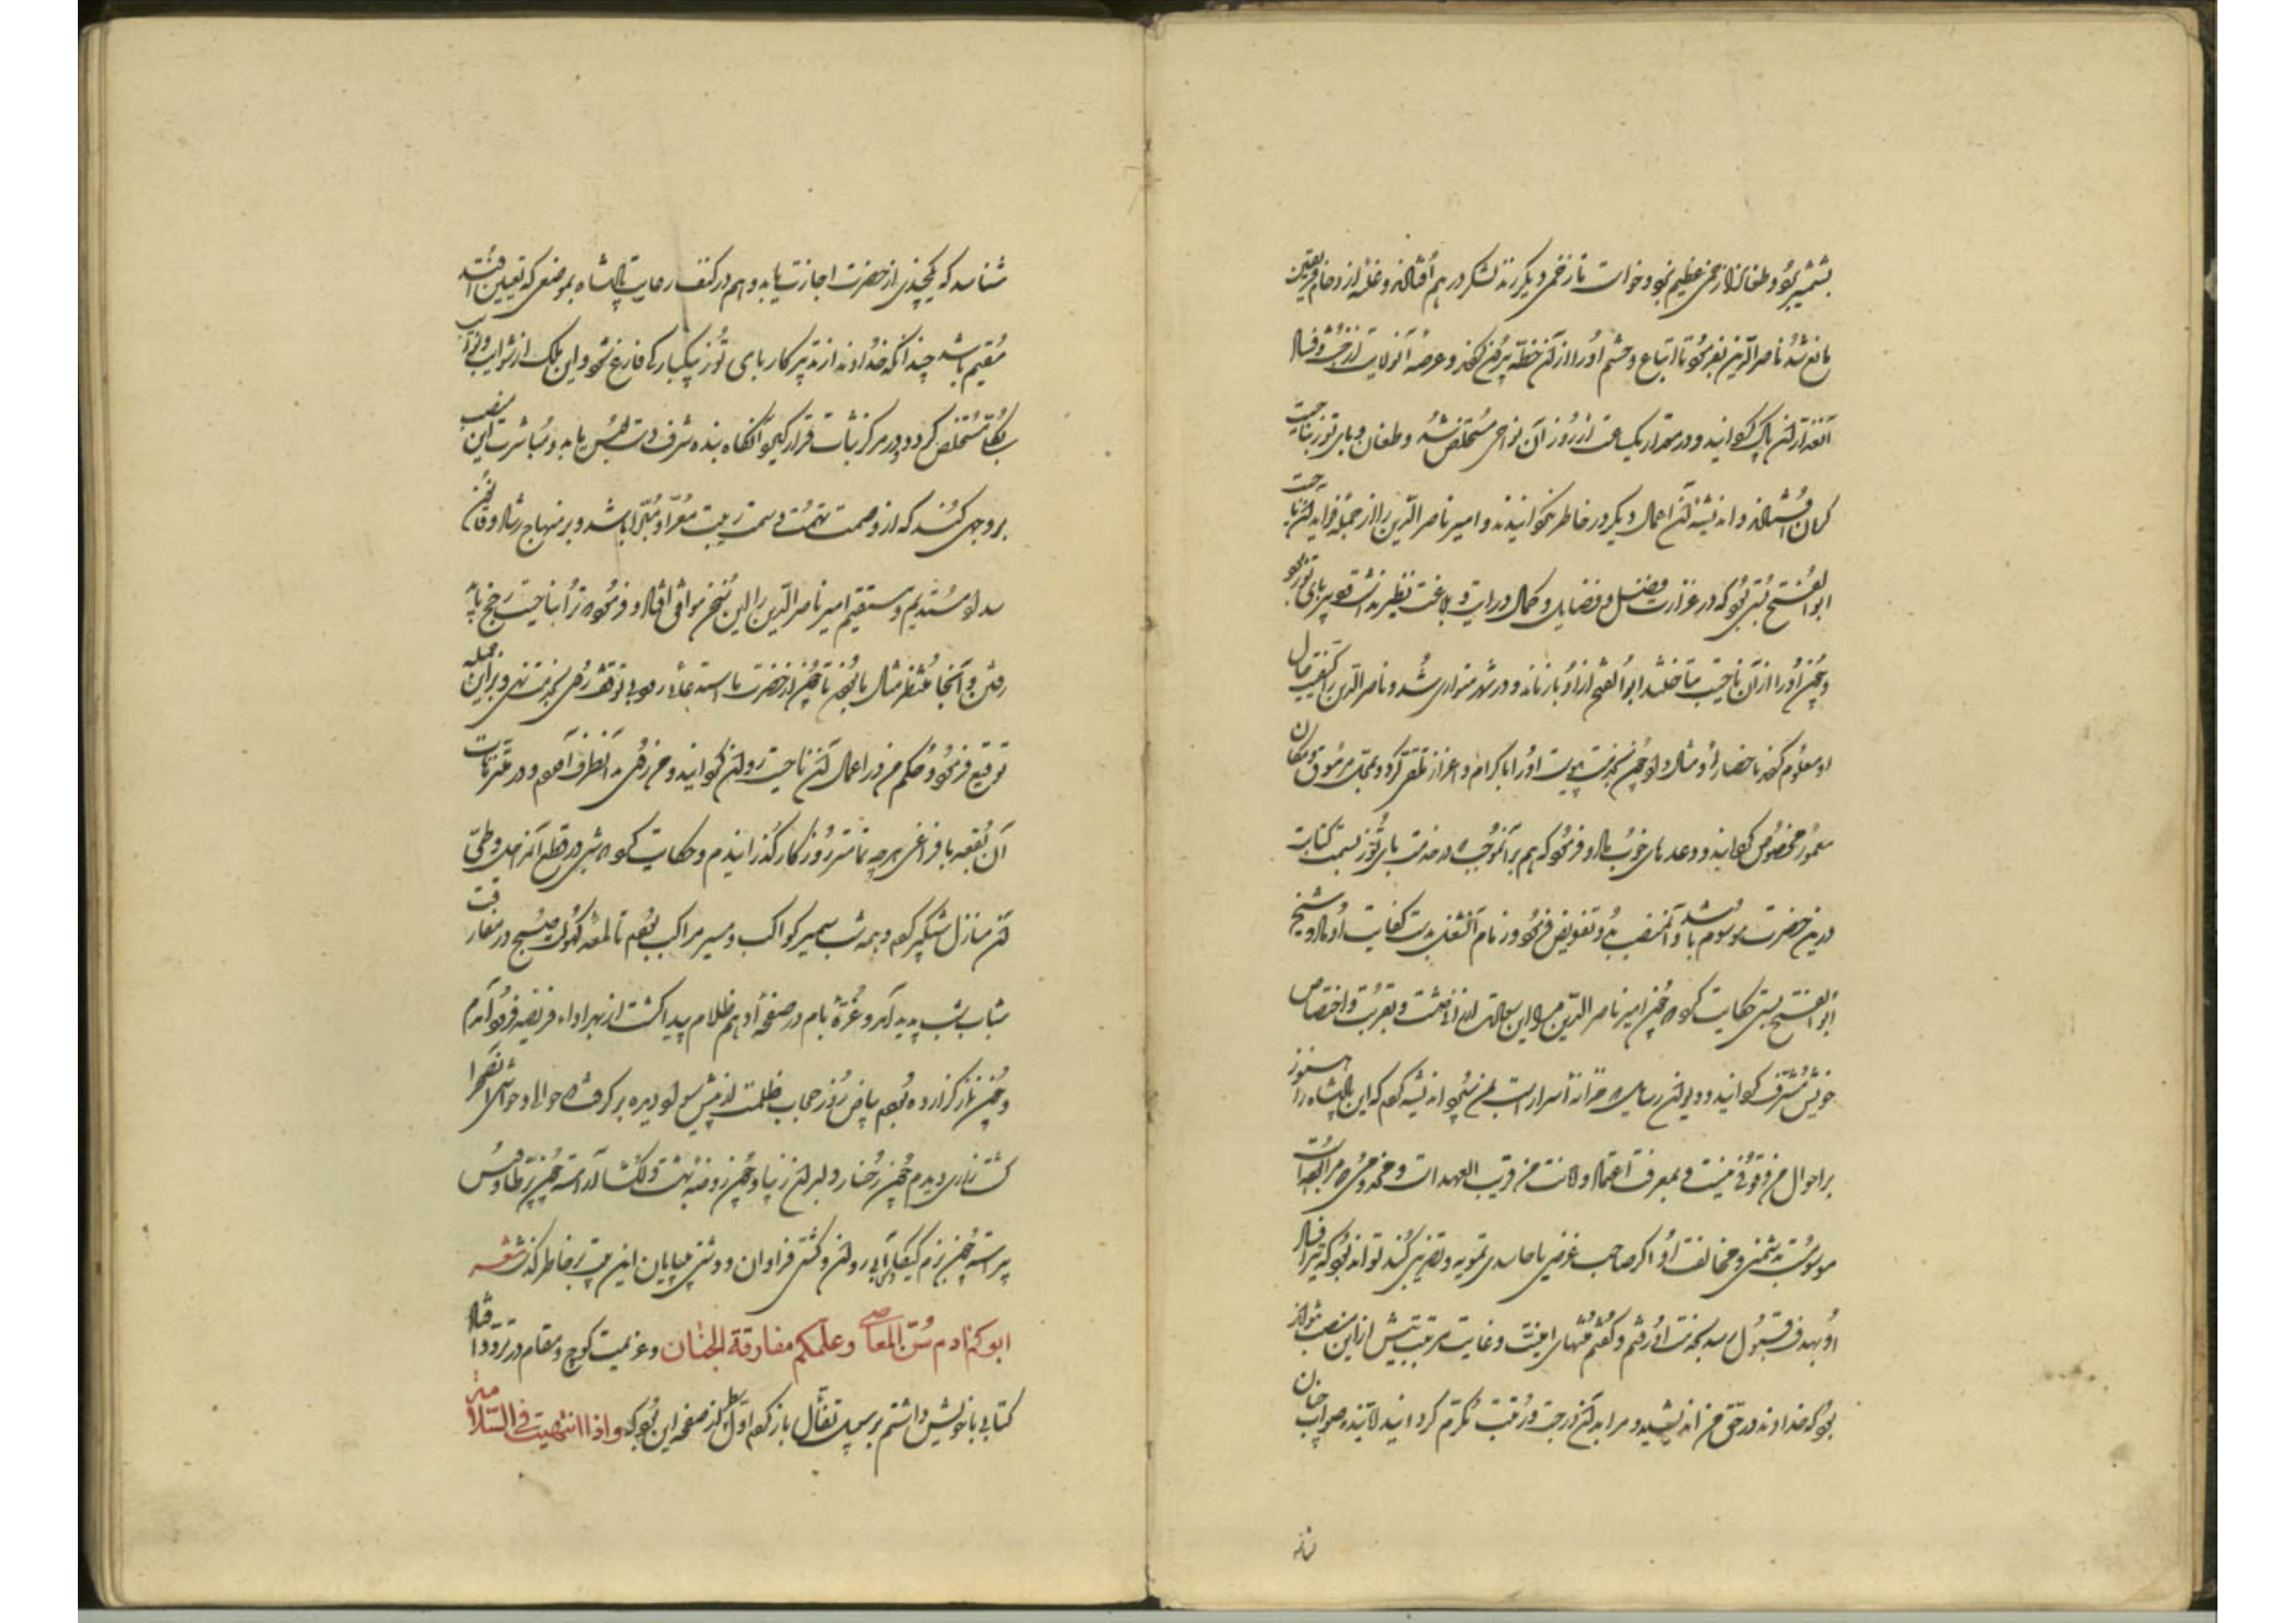 بشمشیر ببرد و طغان را زخمی عظیم نمود و خواست تا زخمی دیگر زند لشکر در هم افتادند و غلبه از دحام فریقین
مانع شد ناصر الدین بفرمود تا اتباع و حشم او را از آن خطه بیرون کردند و عرصه آن ولایت از خبث و فساد
آن غداران پاک گردانید و در مقدار یک ساعت از روز آن نواحی مستخلص شد و طغان و بای توز بناحیت
کرمان افتادند و اندیشه آن اعمال دیگر در خاطر نگردانیدند و امیر ناصر الدین را از جمله فواید آن ناحیت
ابو الفتح بستی بود که در غزارت فضل و فضایل و کمال درایت و بلاغت نظیر نداشت دبیر بای توز بود
و چون او را از آن ناحیت بتاختند ابو الفتح از او باز ماند و در شهر متواری شد و ناصر الدین را کیفیت حال
او معلوم کردند باحضار او مثال داد و چون بخدمت پیوست او را باکرام و اعزاز تلقی کرد و بمحل مرموق و مکان
معمور مخصوص گردانید و وعده های خوب داد و فرمود که هم بر آن موجب که در خدمت بای توز بسمت کتابت
در این حضرت موسوم باشد و آن منصب بدو تفویض فرمود و زمام آن شغل بدست کفایت او داد و شیخ
ابو الفتح بستی حکایت کرد که چون امیر ناصر الدین مرا این حالت ارزانی داشت و بقربت و اختصاص
خویش مشرف گردانید و دیوان رسایل که خزانه اسرار است بمن سپرد اندیشه کردم که این پادشاه را هنوز
بر احوال من وقوفی نیست و بمعرفت اعتماد و امانت من قریب العهد است و مخدومی که مرا بوده است
موسوم بدشمنی و مخالفت او اگر صاحب غرضی یا حاسدی تمویه و تضریبی کند تواند بود که تیر افساد
او بهدف قبول رسد بخدمت او رفتم و گفتم منتهای امنیت و غایت مرتبت بیش از این منصب نتواند
بود که خداوند در حق من اندیشید و مرا بدان درجت و رتبت مکرم گردانید الا بنده صواب چنان
شنا
شناسد که یکچندی از حضرت اجازت یابد و هم در کنف رعایت پادشاه بموضعی که تعیین افتد
مقیم باشد چندانکه خداوند از تدبیر کار بای توز بیکبارگی فارغ شود و این ملک از شوایب و نوایب
بکلی مستخلص گردد و در مرکز ثبات قرار گیرد آنگاه بنده شرف دست بوس یابد و مباشرت این منصب
بر وجهی کند که از وصمت تهمت و سمت ریبت معرا و مبرا باشد و بر منهاج رشاد و قانون
سداد مستدیم و مستقیم امیر ناصر الدین را این سخن موافق افتاد و فرمود که ترا بناحیت رخج باید
رفتن و آنجا منتظر مثال بودن تا چون از حضرت ما استدعا رود بی توقف روی بخدمت نهی و بر این جمله
توقیع فرمود و حکم من در اعمال آن ناحیت روان گردانید و من روی بدان طرف آوردم و در متنزهات
آن بقعه با فراغی هر چه تمامتر روزگار گذرانیدم و حکایت کرد که شبی در قطع آن مراحل و طی
آن منازل شبگیر کردم و همه شب سمیر کواکب و مسیر مراکب بودم تا لمعه کهولت صبح در مفارقت
شباب شب پدید آمد و غره بام در صفحه ادهم ظلام پیدا گشت از بهر اداء فریضه فرود آمدم
و چون نماز گزارده بودم بیاض روز حجاب ظلمت از پیش سواد دیده بر گرفت حوالی و حواشی آن صحرا
کشت زاری دیدم چون رخسار دلبران زیبا و چون روضه بهشت دلگشا آراسته چون پر طاوس
پیراسته چون بزم کیکاوس آبی روان و کشتی فراوان و دشتی بی پایان این بیت بر خاطر گذشت شعر
ابوکم آدم سن المعاصی وعلمکم مفارقة الجنان و عزیمت کوچ و مقام در تردد افتاد
کتابی با خویش داشتم بر سبیل تفأل باز کردم اول سطر از صفحه این بود که و اذا انتهیت الی السلامة